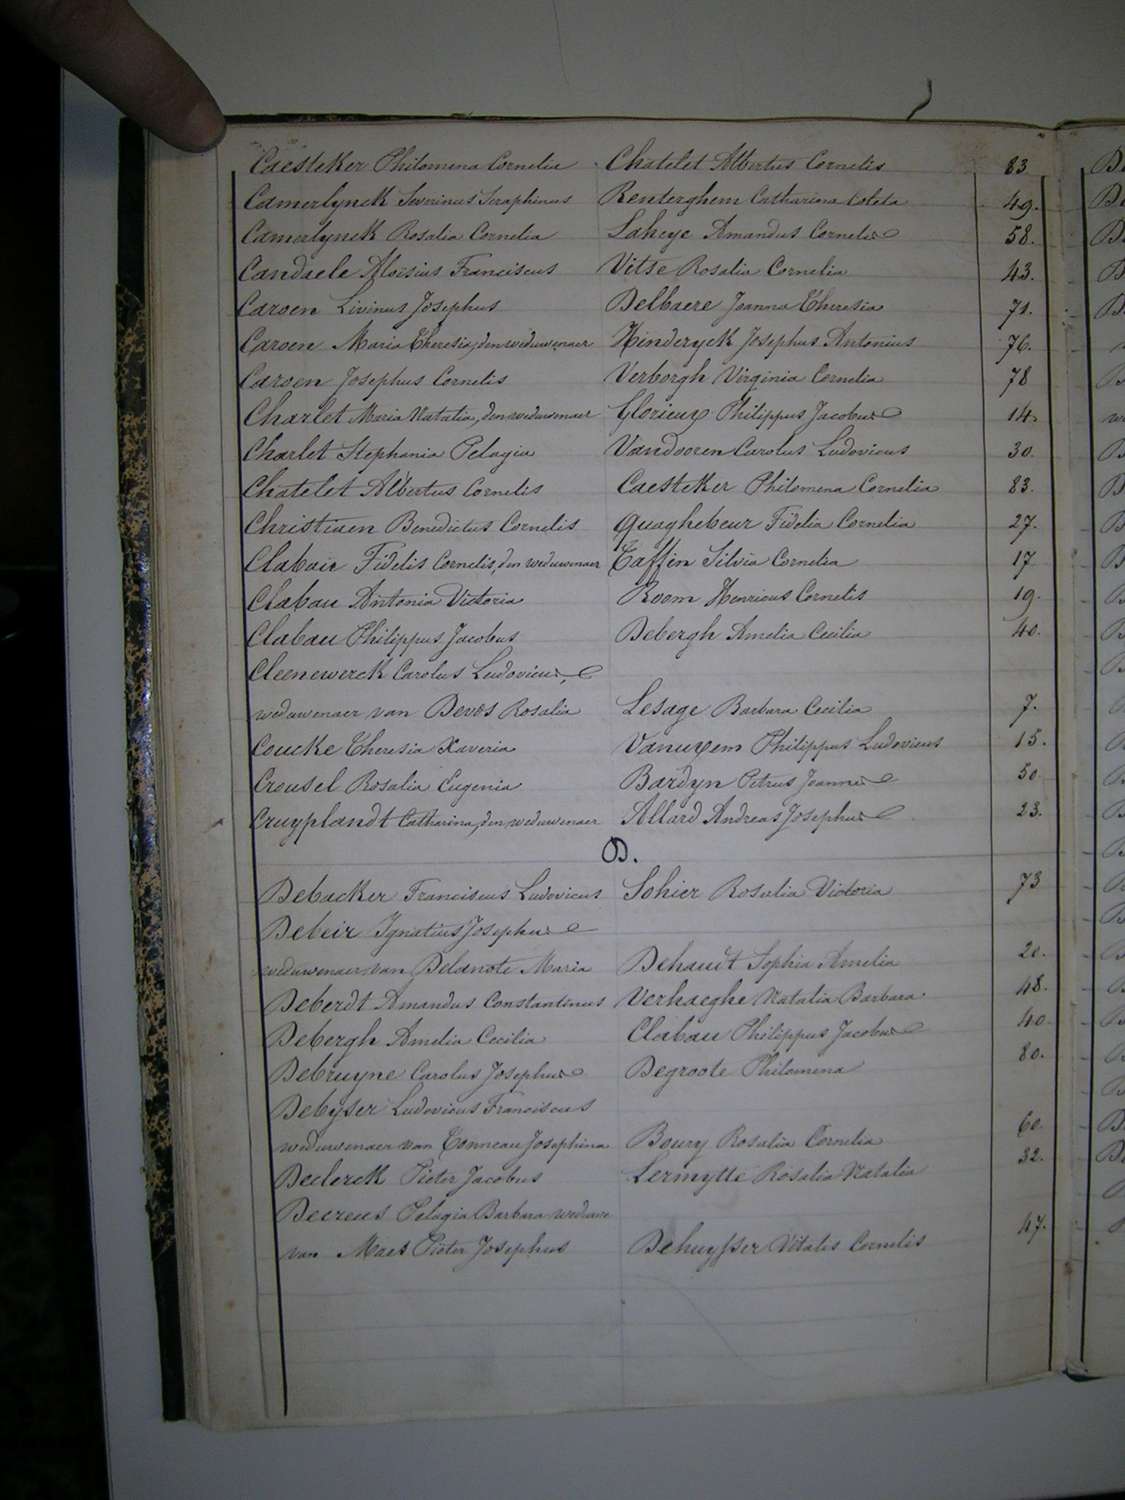 Caesteker Philomena Cornelia Chatelet Albertus Cornelis 83
Camerlynck Severinus Seraphinus Renterghem Catharina Coleta 49.
Camerlynck Rosalia Cornelia Laheye Amandus Cornelis 58.
Candaele Aloïsius Franciscus Vitse Rosalia Cornelia 43.
Caroen Livinus Josephus Delbaere Joanna Theresia 71.
Caroen Maria Theresia, den weduwenaer Hinderyck Josephus Antonius 76.
Caroen Josephus Cornelis Verborgh Virginia Cornelia 78
Charlet Maria Natalia, den weduwenaer Glorieux Philippus Jacobus 14.
Charlet Stephania Pelagia Vandooren Carolus Ludovicus 30.
Chatelet Albertus Cornelis Caesteker Philomena Cornelia 83.
Christiaen Benedictus Cornelis Quaghebeur Fidelia Cornelia 27.
Clabau Fidelis Cornelis, den weduwenaer Taffin Silvia Cornelia 17
Clabau Antonia Victoria Room Henricus Cornelis 19.
Clabau Philippus Jacobus Debergh Amelia Cecilia 40.
Cleenewerck Carolus Ludovicus,
weduwenaer van Devos Rosalia Lesage Barbara Cecilia 7.
Coucke Theresia Xaveria Vanuxem Philippus Ludovicus 15.
Creusel Rosalia Eugenia Bardyn Petrus Joannes 50
Cruyplandt Catharina, den weduwenaer Allard Andreas Josephus 23.
D.
Debacker Franciscus Ludovicus Sohier Rosalia Victoria 73
Debeir Ignatius Josephus
weduwenaer van Delanote Maria Dehaudt Sophia Amelia 20.
Deberdt Amandus Constantinus Verhaeghe Natalia Barbara. 48.
Debergh Amelia Cecilia Clabau Philippus Jacobus 40
Debruyne Carolus Josephus Degroote Philomena 80.
Debyser Ludovicus Franciscus
weduwenaer van Tonneau Josephina Boury Rosalia Cornelia 60
Declerck Pieter Jacobus Lermytte Rosalia Natalia 32.
Decreus Pelagia Barbara weduwe
van Maes Pieter Josephus Dehuysser Vitalis Cornelis 47.